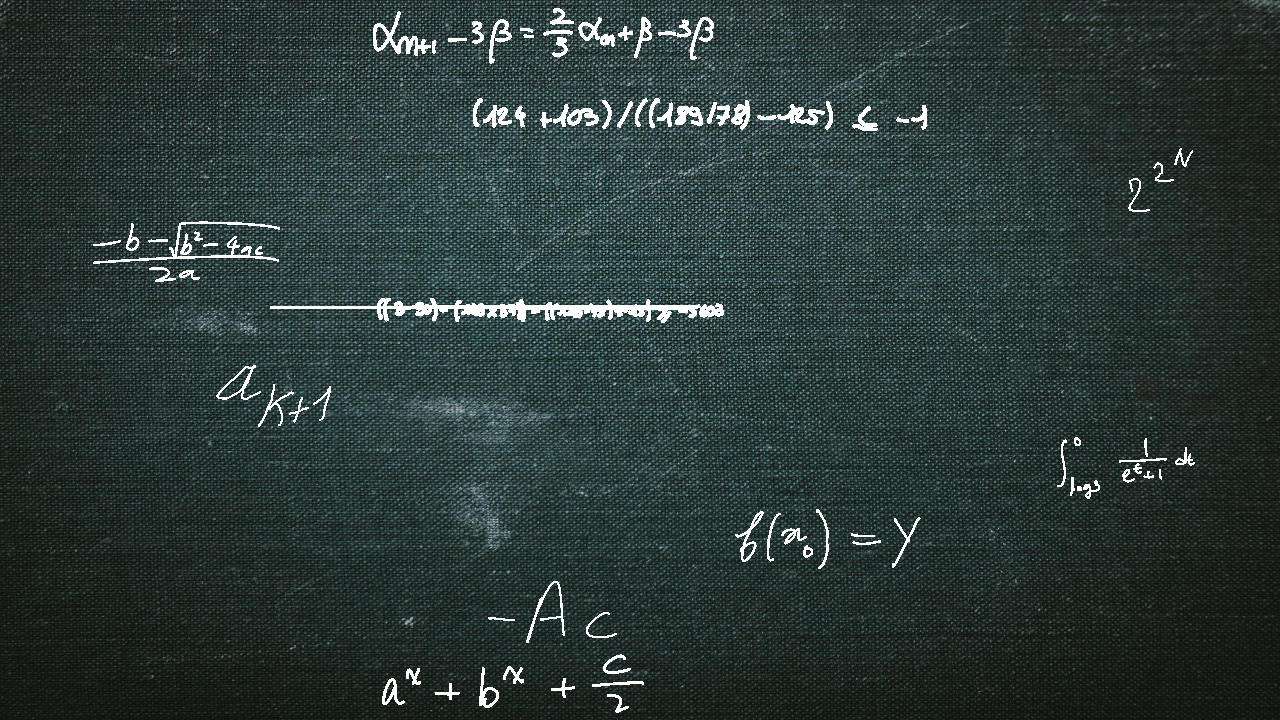 α_{m+1} - 3β = \frac{2}{3} α_m + β - 3β
(124 + 103) / ((189 / 78) - 125) ≤ -1
2^{2^N}
\frac{-b - \sqrt{b^2 - 4ac}}{2a}
a_{k+1}
\int_{\log 3}^{0} \frac{1}{e^t + 1} dt
f(x_0) = y
-A c
a^x + b^x + \frac{c}{2}